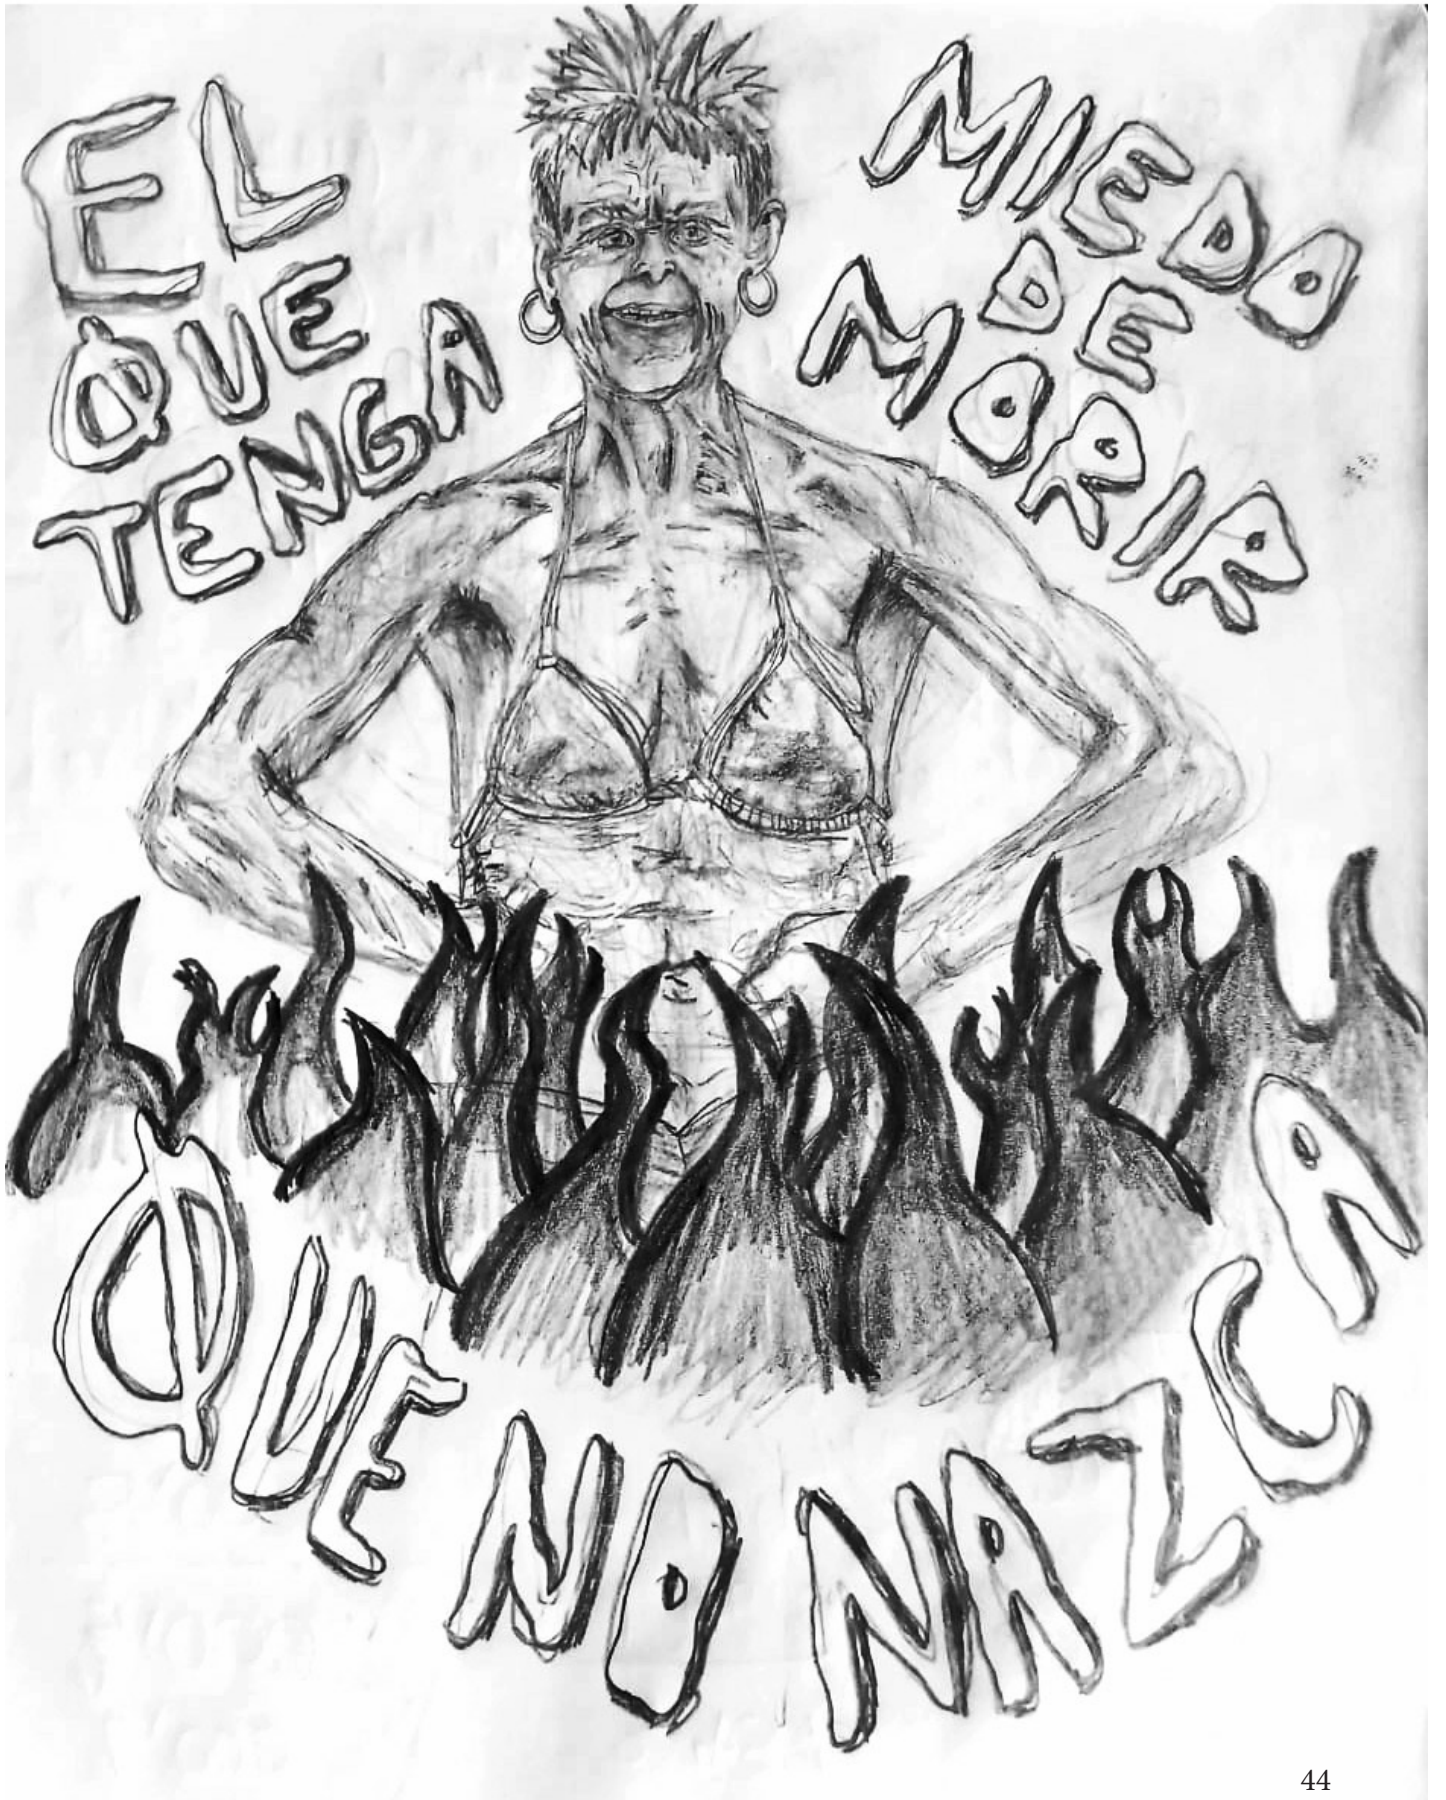 EL
QUE
TENGA
MIEDO
DE
MORIR
QUE NO NAZCA
44